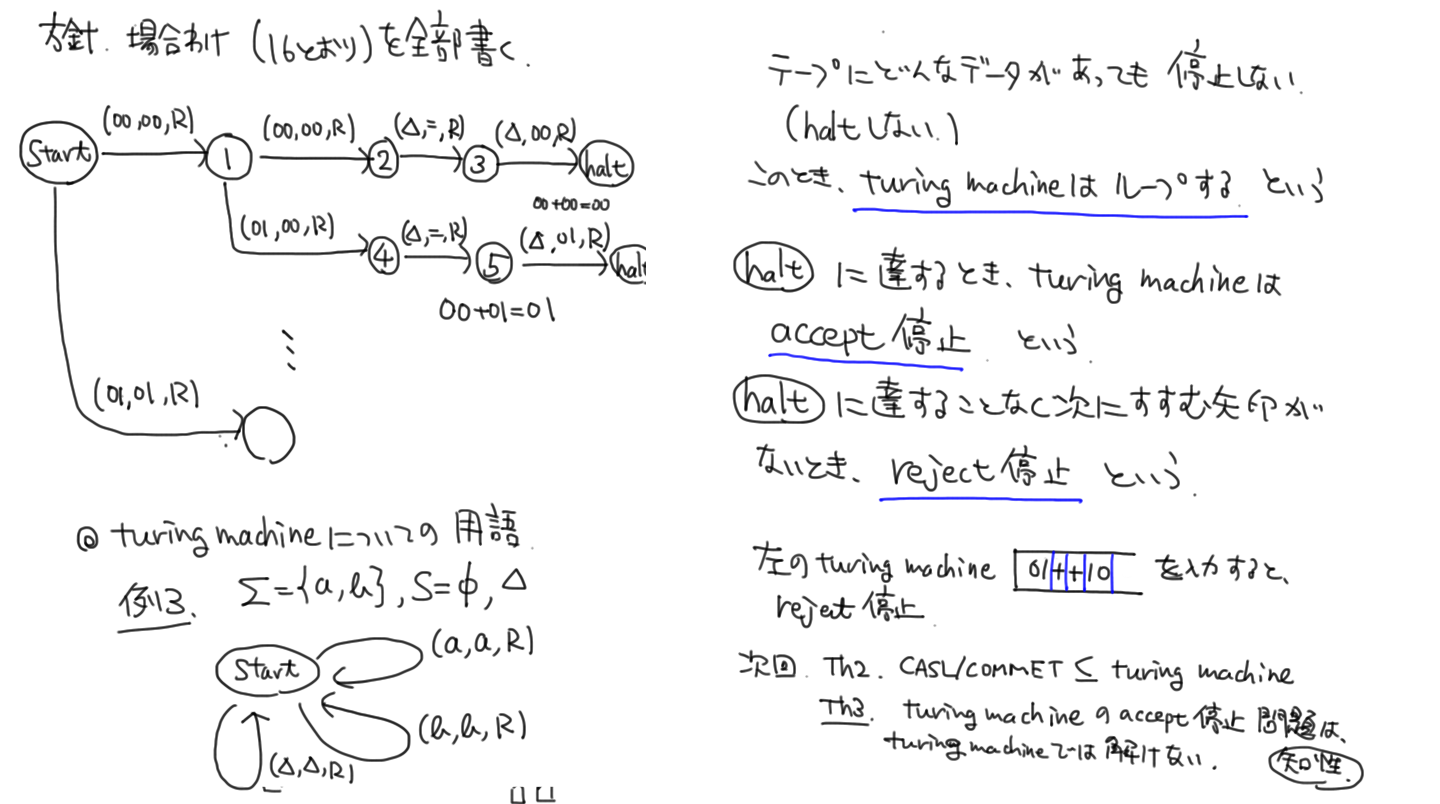 方針. 場合わけ (16とおり)を全部書く.
(00,00,R)
(00,00,R)
(Δ,=,R)
(Δ,00,R)
Start
1
2
3
halt
00+00=00
(01,00,R)
(Δ,=,R)
(Δ,01,R)
4
5
halt
00+01=01
(01,01,R)
◎ turing machineについての用語
例3. Σ={a,b}, S=φ, Δ
Start
(a,a,R)
(b,b,R)
(Δ,Δ,R)
テープにどんなデータがあっても停止しない.
(haltしない.)
このとき、turing machineはループするという
haltに達するとき、turing machineは
accept停止 という.
haltに達することなく次にすすむ矢印が
ないとき、reject停止 という.
左のturing machine 01++10 を入力すると、
reject停止.
次回. Th2. CASL/COMMET ≦ turing machine
Th3. turing machineのaccept停止問題は、
turing machineでは解けない.